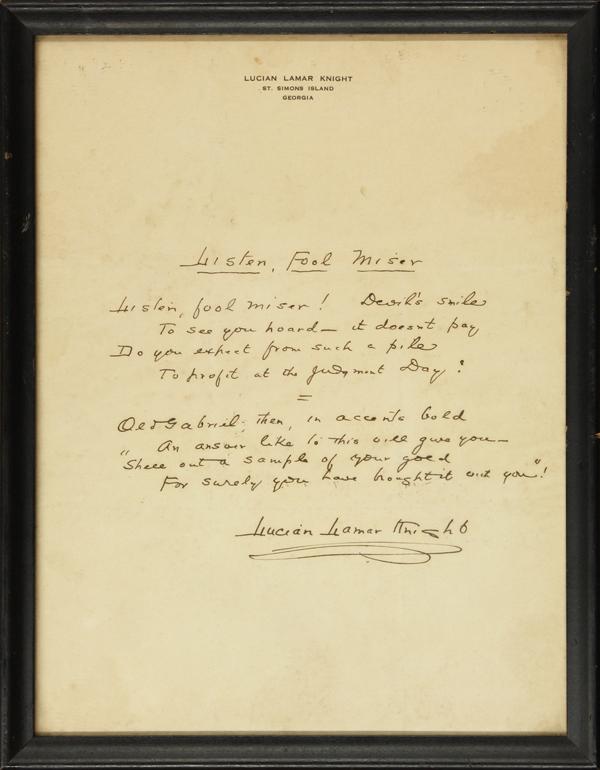 LUCIAN LAMAR KNIGHT
ST. SIMONS ISLAND
GEORGIA
Listen, Fool Miser
Listen, fool miser! Devil's smile
To see you hoard — it doesn't pay
Do you expect from such a pile
To profit at the Judgment Day?
=
Old Gabriel, then, in accents bold
An answer like to this will give you —
"Shell out a sample of your gold
For surely you have brought it with you"!
Lucian Lamar Knight